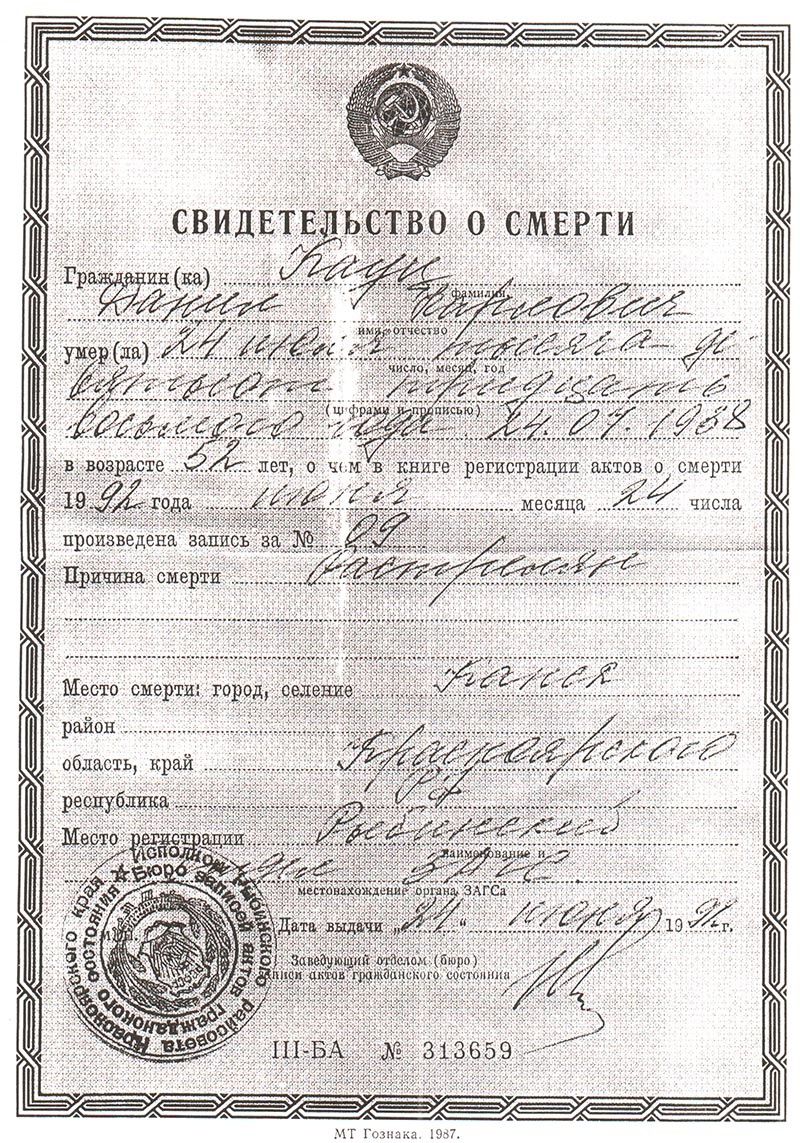 СВИДЕТЕЛЬСТВО О СМЕРТИ
Гражданин (ка) Кауц
фамилия
Данил Карлович
имя, отчество
умер(ла) 24 июля тысяча де-
число, месяц, год
вятьсот тридцать
(цифрами и прописью)
восьмого года 24.07.1938
в возрасте 52 лет, о чем в книге регистрации актов о смерти
1992 года июня месяца 24 числа
произведена запись за № 09
Причина смерти расстрелян
Место смерти: город, селение Канск
район
область, край Красноярского
республика РФ
Место регистрации Рыбинский
наименование и
отдел ЗАГС
местонахождение органа ЗАГСа
Исполком Рыбинского райсовета Красноярского края
Бюро записей актов гражданского состояния
Дата выдачи „24“ июня 1992 г.
Заведующий отделом (бюро)
записи актов гражданского состояния
III-БА № 313659
МТ Гознака. 1987.